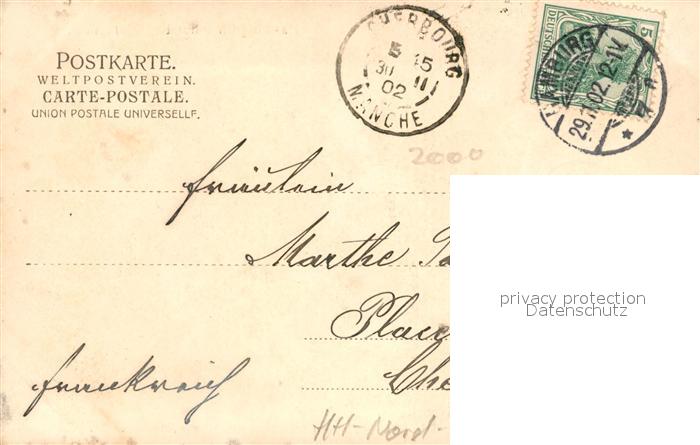 POSTKARTE.
WELTPOSTVEREIN.
CARTE-POSTALE.
UNION POSTALE UNIVERSELLE.
CHERBOURG
5 15
30 11
02
MANCHE
DEUTSCHES
5
HAMBURG
29.11.02. 2-1V.
2000
Fräulein
Marthe
Place
Frankreich
HH-Nord-
privacy protection
Datenschutz